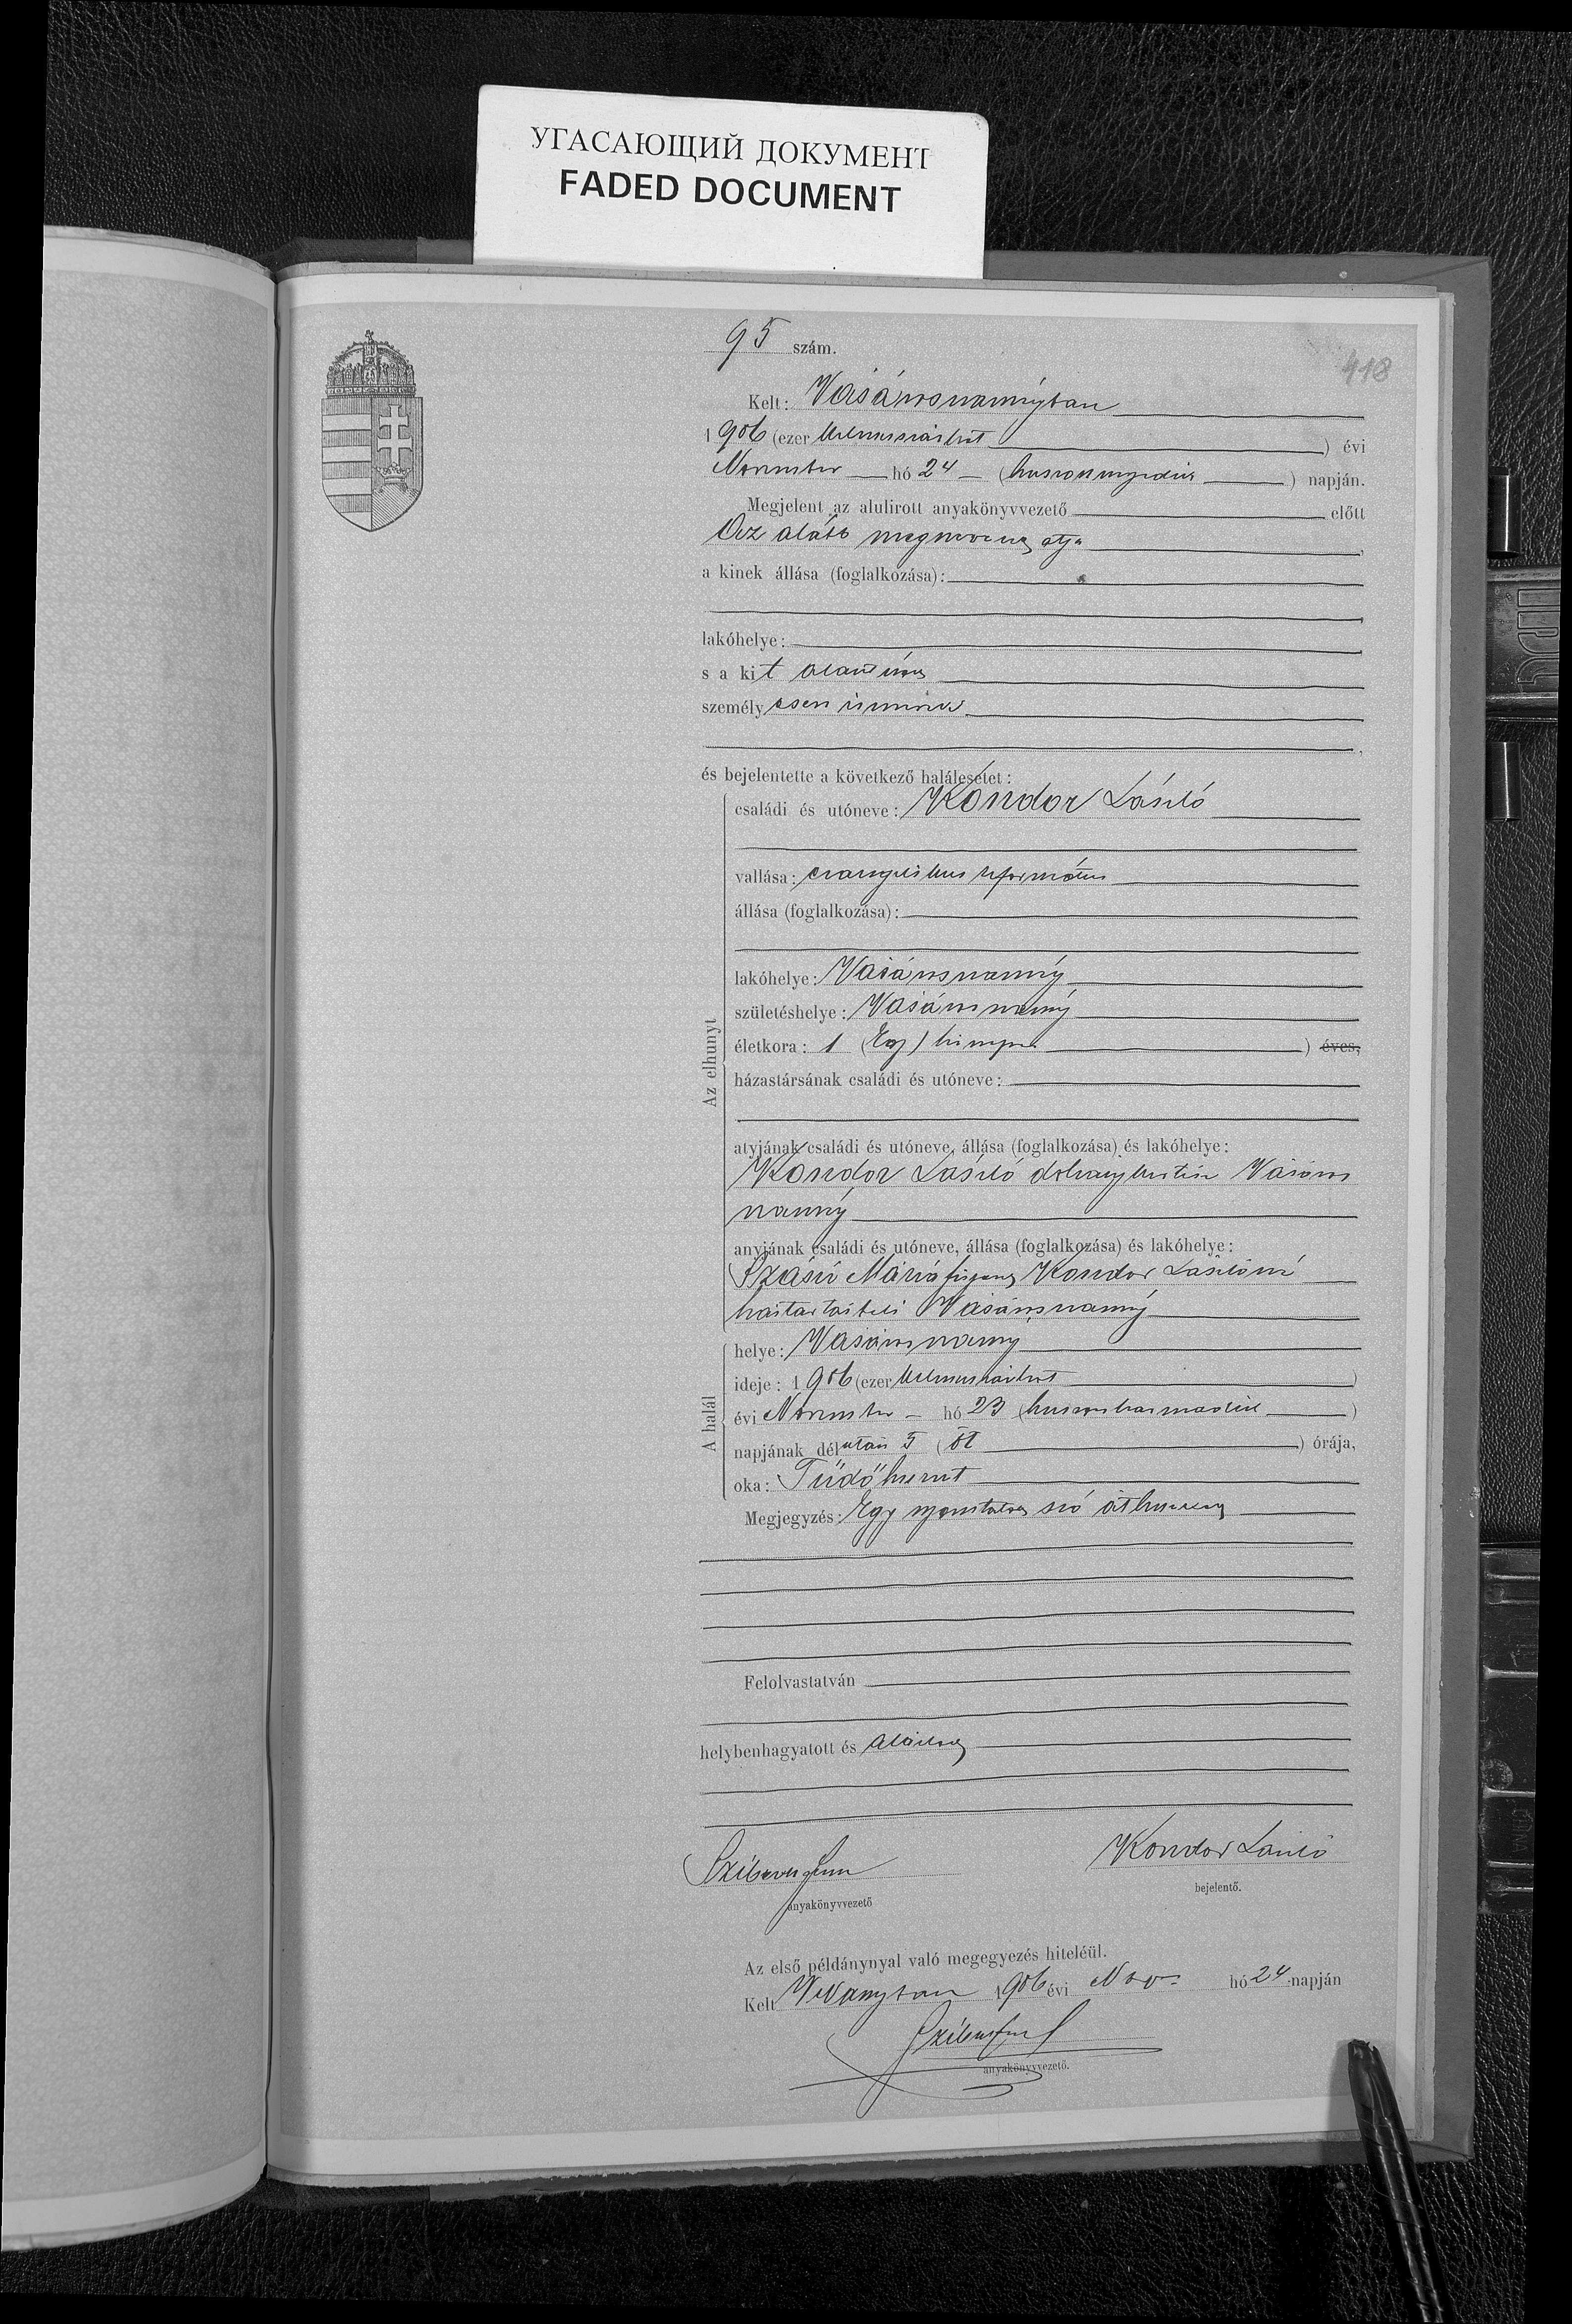 УГАСАЮЩИЙ ДОКУМЕНТ
FADED DOCUMENT
418
95 szám.
Kelt: Vásárosnaményban
1906 (ezer kilencszázhat) évi
November hó 24 (huszonnegyedik) napján.
Megjelent az alulirott anyakönyvvezető előtt
Az alább megnevezett atya,
a kinek állása (foglalkozása):
lakóhelye:
s a kit
személyesen ismerek
és bejelentette a következő halálesetet:
Az elhunyt
családi és utóneve: Kondor László
vallása: evangelikus református
állása (foglalkozása):
lakóhelye: Vásárosnamény
születéshelye: Vásárosnamény
életkora: 1 (Egy) hónapos ) éves,
házastársának családi és utóneve:
atyjának családi és utóneve, állása (foglalkozása) és lakóhelye:
Kondor László dohánykertész Vásáros
namény
anyjának családi és utóneve, állása (foglalkozása) és lakóhelye:
Szászi Mária Kondor Lászlóné
háztartásbeli Vásárosnamény
A halál
helye: Vásárosnamény
ideje: 1906 (ezer kilencszázhat)
évi November hó 23 (huszonharmadik)
napjának délután 5 (öt) órája,
oka: Tüdőhurut
Megjegyzés: Egy nyomtatott szó áthuzva
Felolvastatván
helybenhagyatott és aláírva
anyakönyvvezető
Kondor László
bejelentő.
Az első példánynyal való megegyezés hiteléül.
Kelt Vnaményban 1906 évi Nov. hó 24 napján
anyakönyvvezető.